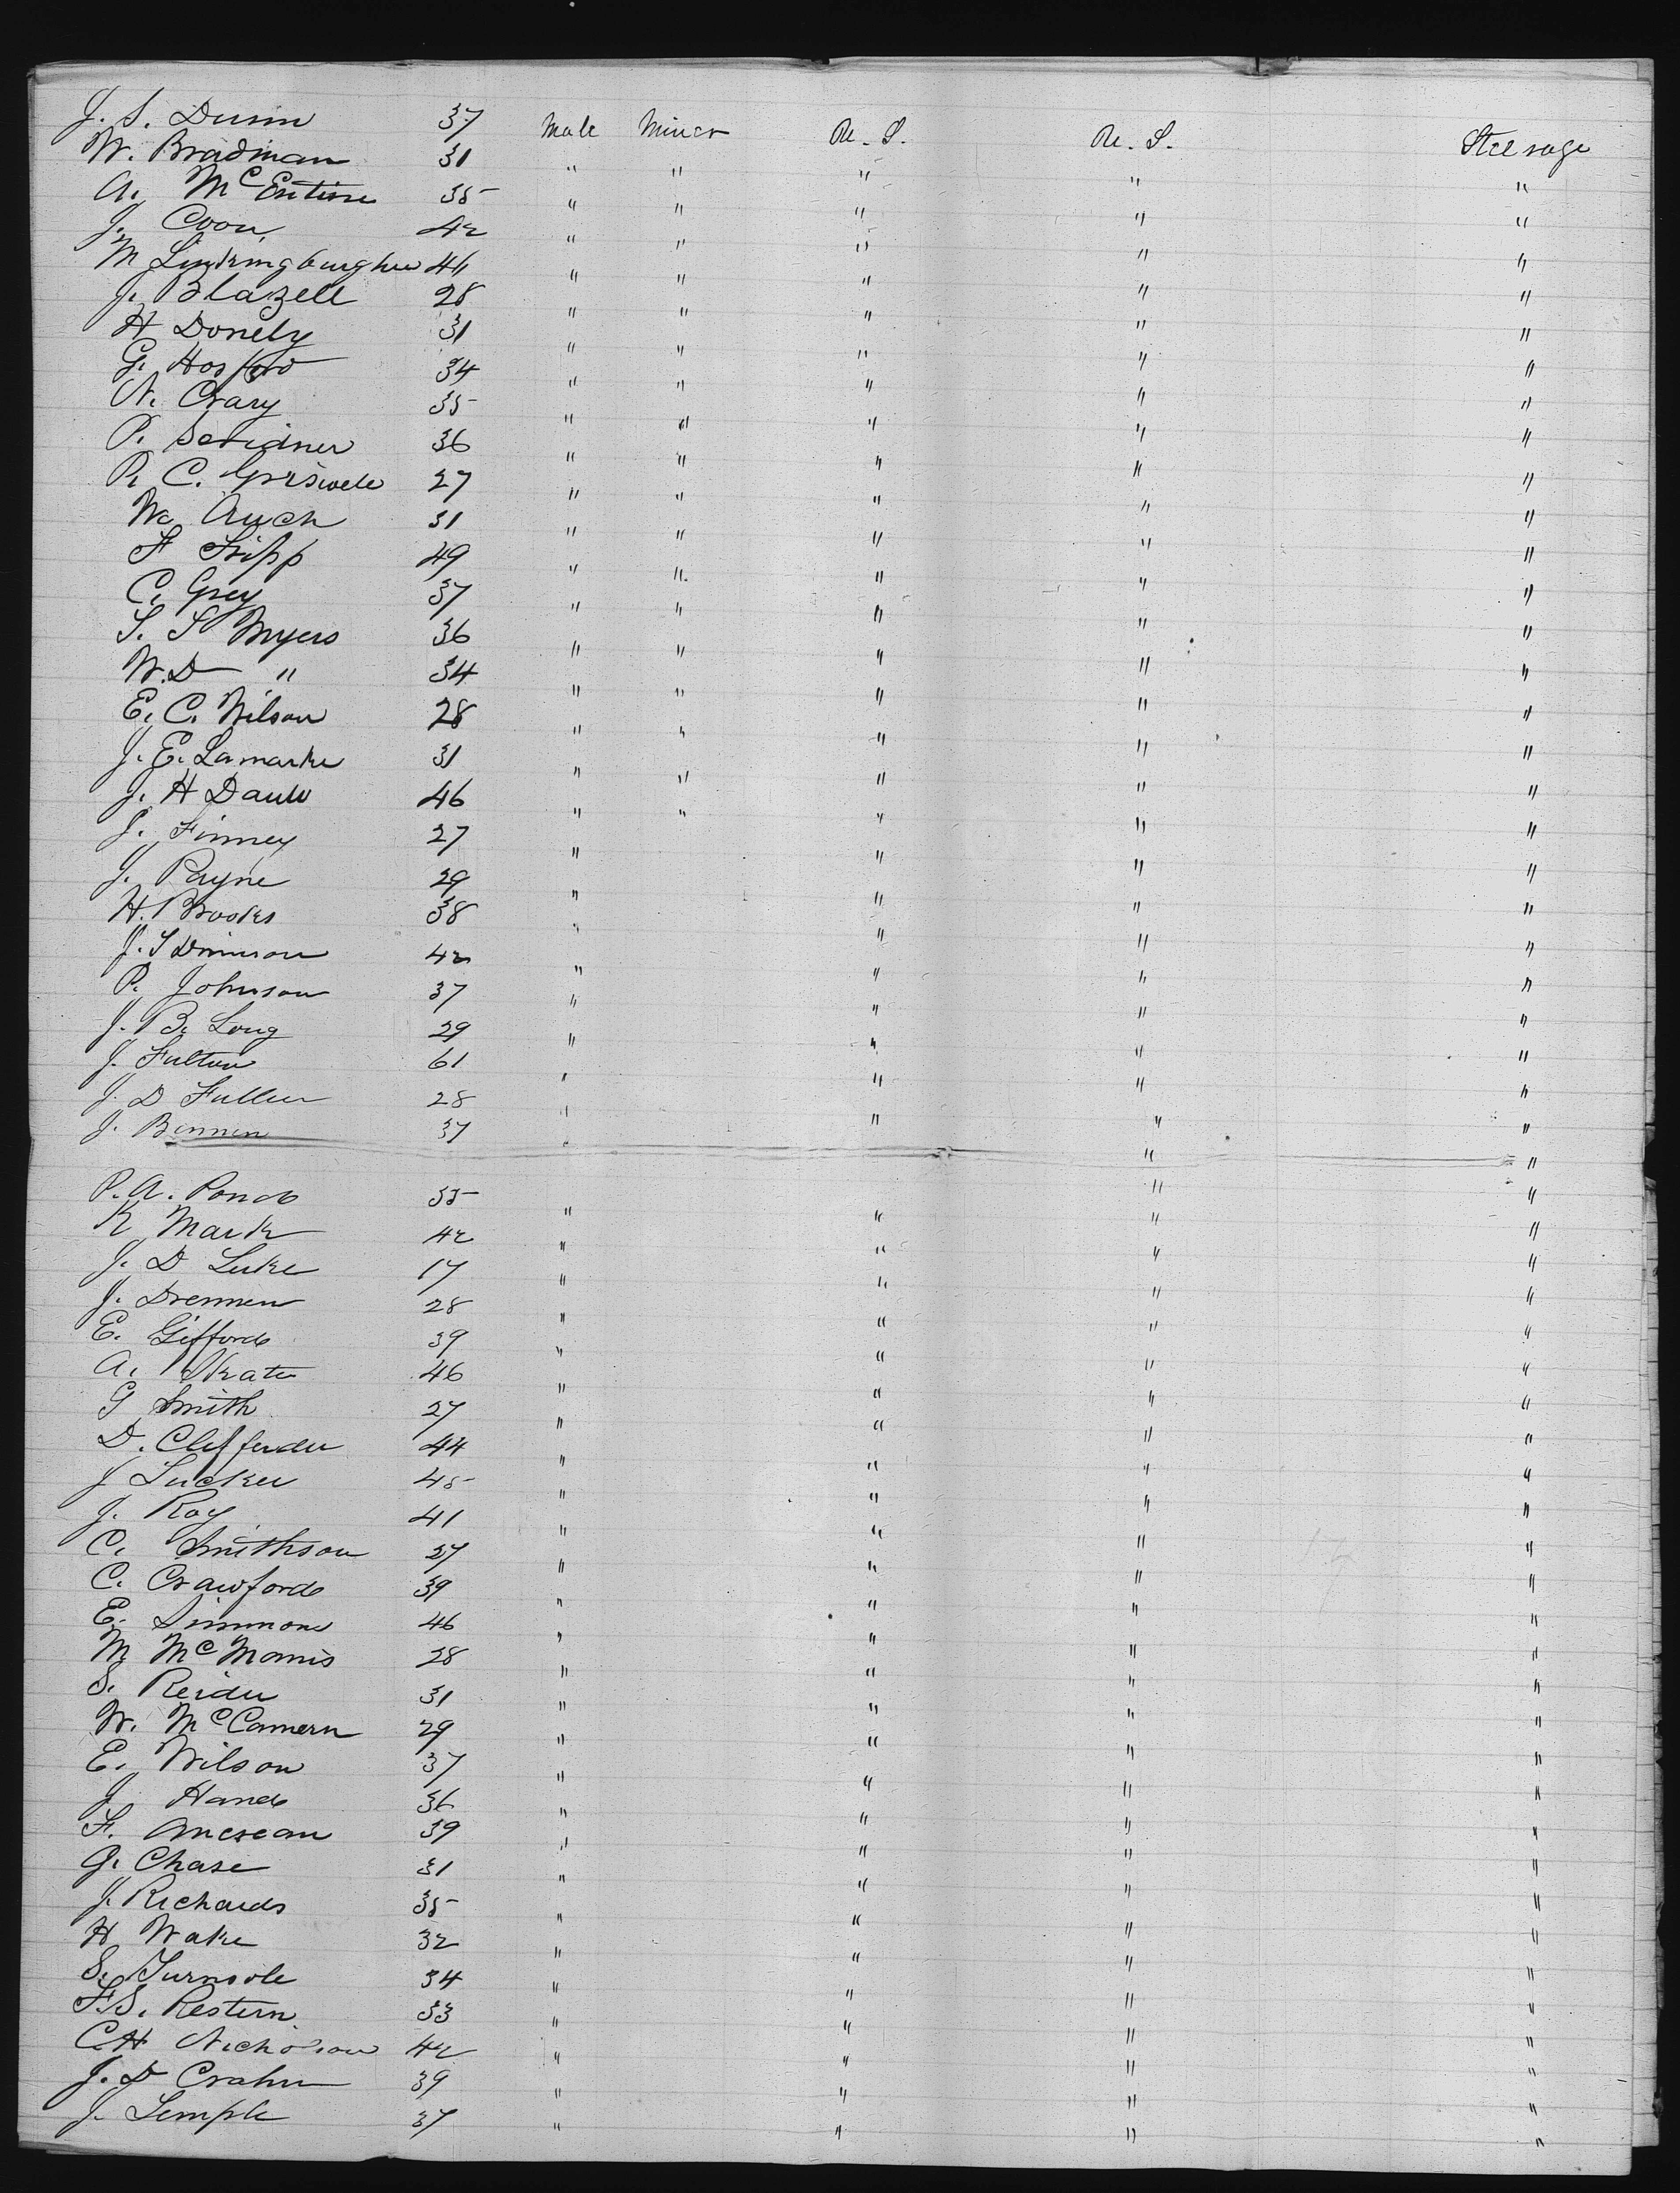 J. S. Dunn 37 Male Miner U. S. U. S. Steerage
W. Bradman 31 " " " " "
A. McEntire 35 " " " " "
J. Coon 42 " " " " "
M 44 " " " " "
J. Blazell 28 " " " " "
H Donely 31 " " " " "
G. Hosford 34 " " " " "
N. Crary 35 " " " " "
P. Scridner 36 " " " " "
R. C. Griswele 27 " " " " "
W. Auch 31 " " " " "
F Tripp 49 " " " " "
C. Grey 37 " " " " "
S. S Myers 36 " " " " "
W. D " 34 " " " " "
E. C. Wilson 28 " " " " "
J. E. Lamarke 31 " " " " "
J. H Daulo 46 " " " " "
J. Finney 27 " " " "
J. Payne 29 " " " "
H. Brooks 38 " " " "
J. S 42 " " " "
P. Johnson 37 " " " "
J. B. Long 29 " " " "
J. Fulton 61 " " " "
J. D Fuller 28 " " " "
J. Bennen 37 " " " "
P. A. Pond 35 " " " "
R Mark 42 " " " "
J. D Luke 17 " " " "
J. Drennen 28 " " " "
E. Gifford 39 " " " "
A. Skate 46 " " " "
G Smith 27 " " " "
D. Clifferder 44 " " " "
J Tucker 45 " " " "
J. Roy 41 " " " "
C. Smithson 27 " " " "
C. Crawford 39 " " " "
E. Simmons 46 " " " "
M McMorris 28 " " " "
S. Reider 31 " " " "
W. McCamern 29 " " " "
E. Wilson 37 " " " "
J Hand 36 " " " "
F. 39 " " " "
G. Chase 31 " " " "
J. Richards 35 " " " "
H Wake 32 " " " "
S. Turnsole 34 " " " "
F. S. Restern 33 " " " "
C. H Nicholson 42 " " " "
J. D Crahn 39 " " " "
J. Semple 37 " " " "